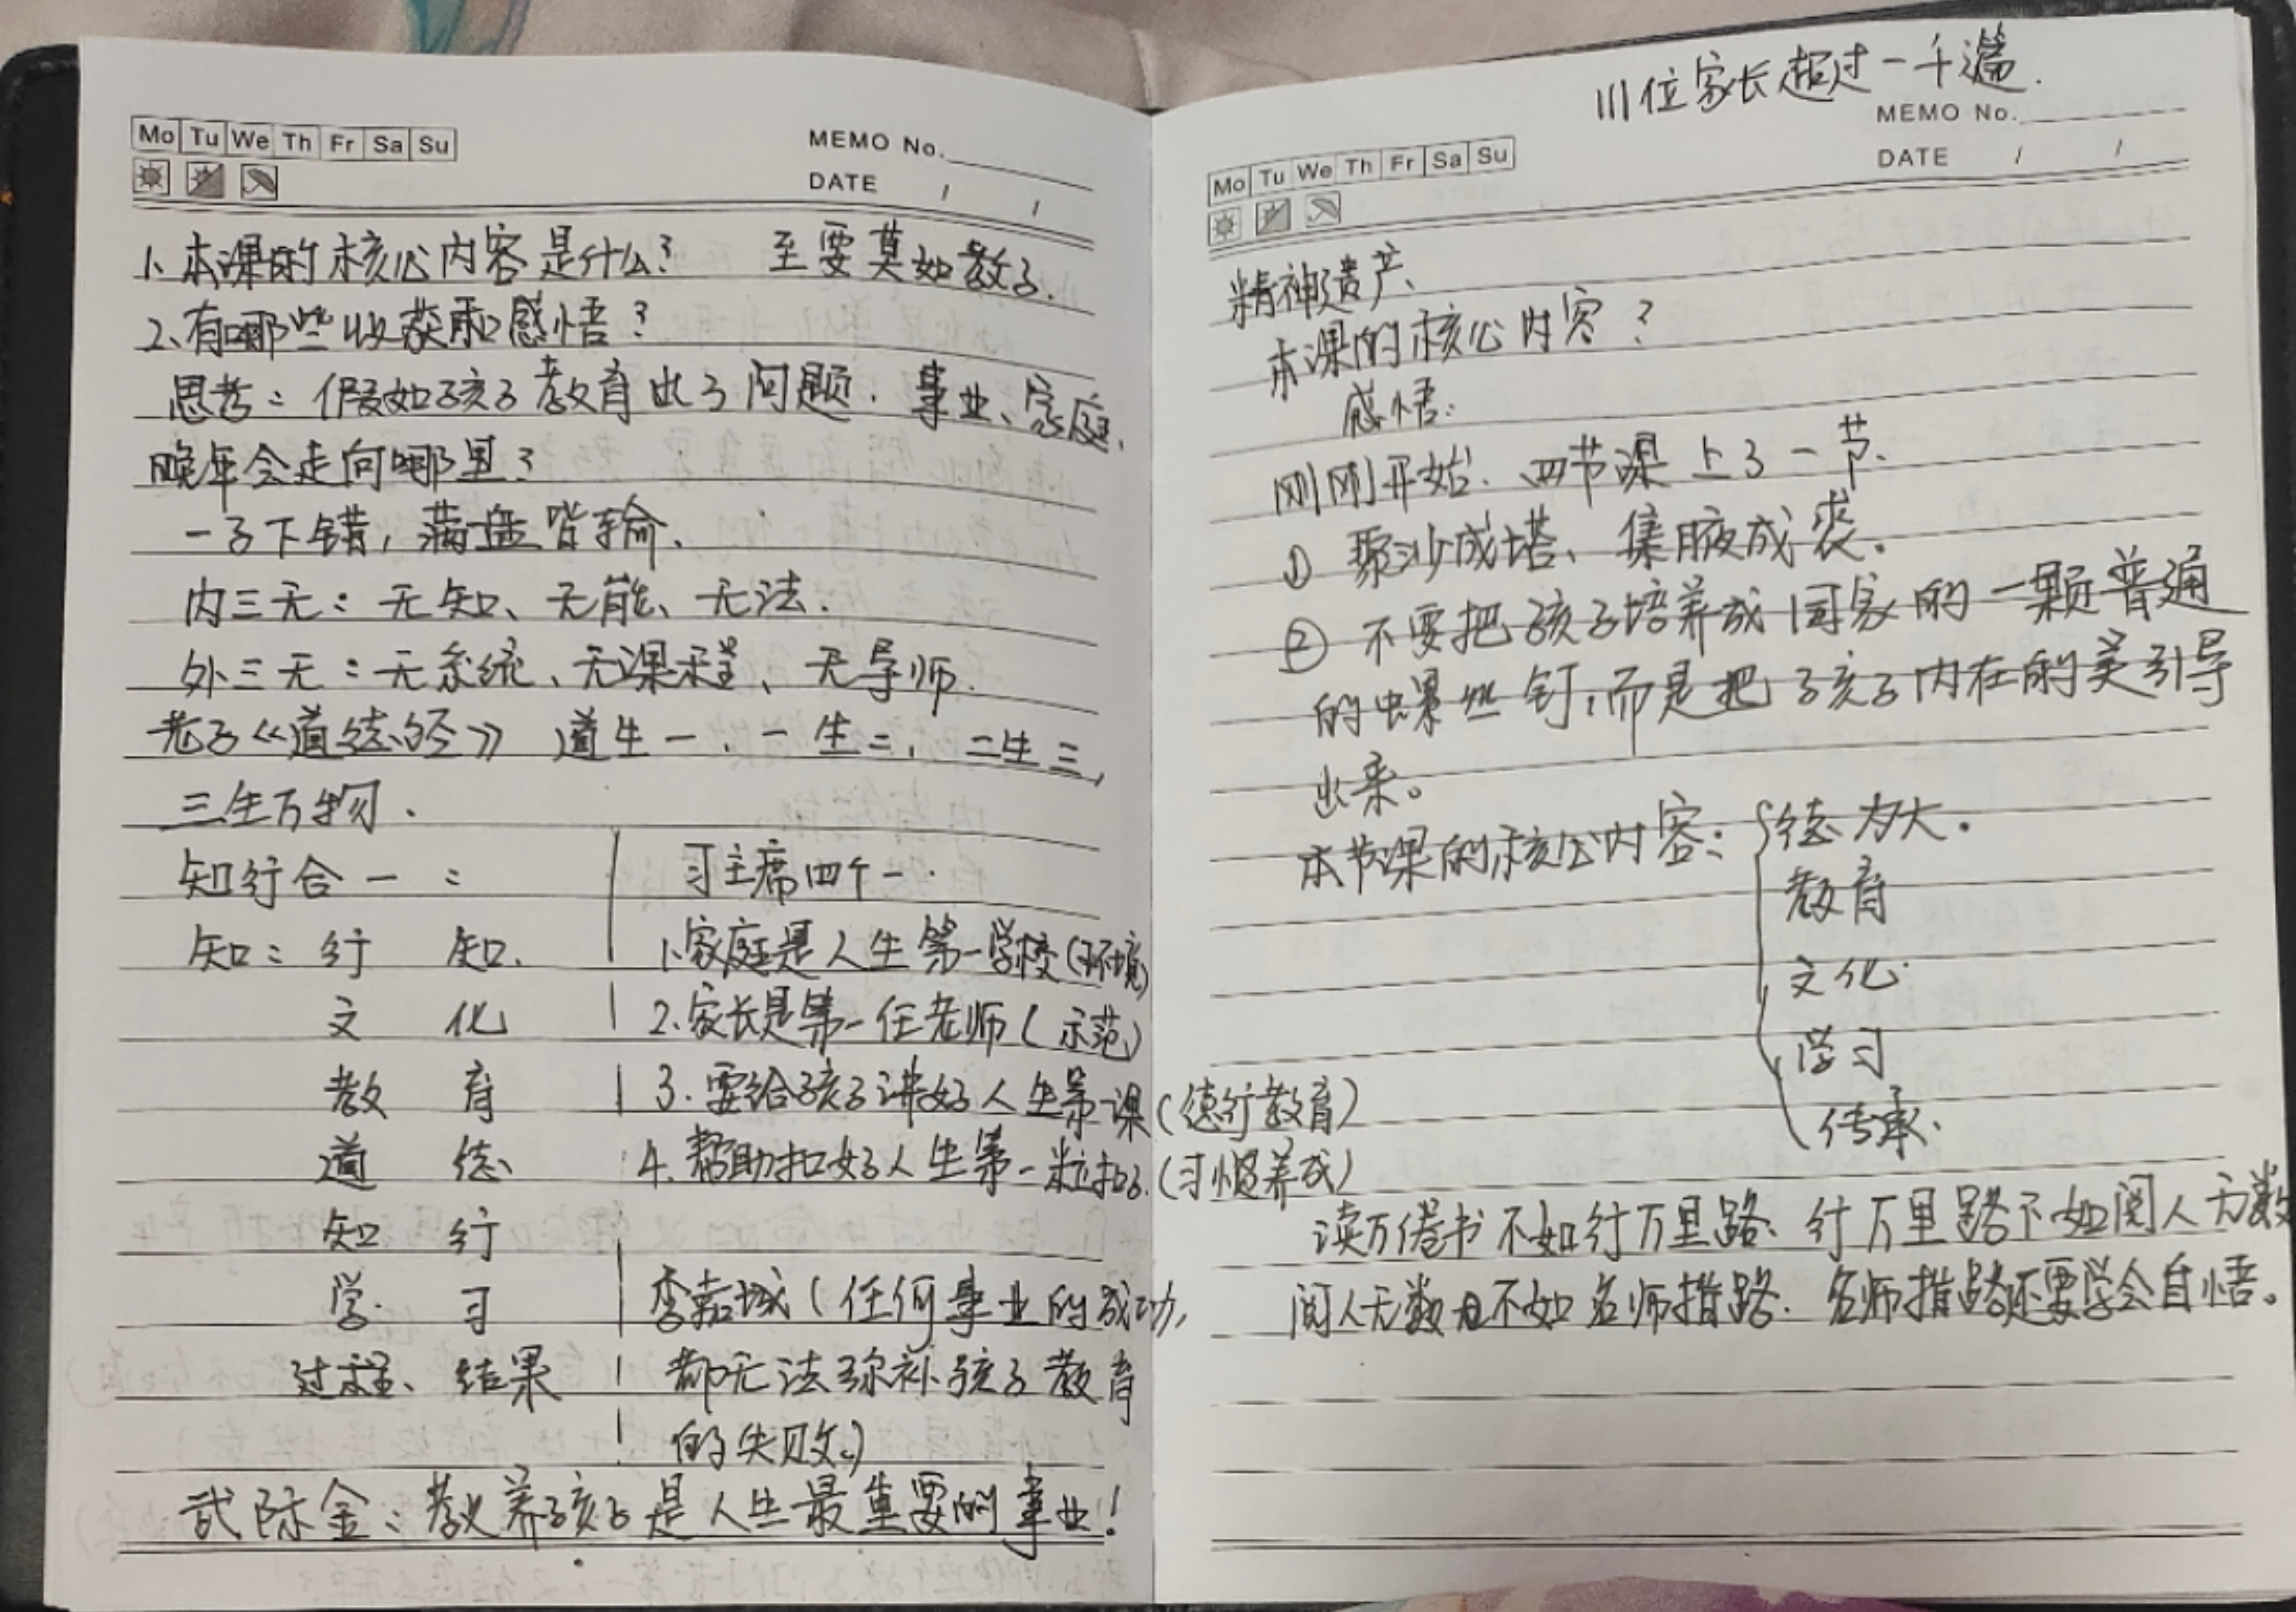 Mo Tu We Th Fr Sa Su
MEMO No.
DATE / /
1、本课的核心内容是什么? 至要莫如教子.
2、有哪些收获和感悟?
思考:假如孩子教育出了问题.事业、家庭、
晚年会走向哪里?
一子下错,满盘皆输、
内三无:无知、无能、无法.
外三无:无系统、无课程、无导师.
老子《道德经》 道生一、一生二,二生三,
三生万物.
知行合一:
知:行 知.
文 化
教 育
道 德
知 行
学 习
过程、结果
习主席四个一.
1.家庭是人生第一学校(环境)
2.家长是第一任老师(示范)
3.要给孩子讲好人生第一课(德行教育)
4.帮助扣好人生第一粒扣子.(习惯养成)
李嘉城(任何事业的成功,
都无法弥补孩子教育
的失败。)
武际金:教养孩子是人生最重要的事业!
111位家长超过一千遍.
MEMO No.
DATE / /
Mo Tu We Th Fr Sa Su
精神遗产、
本课的核心内容?
感悟:
刚刚开始.四节课上了一节.
① 聚沙成塔、集腋成裘.
② 不要把孩子培养成国家的一颗普通
的螺丝钉,而是把孩子内在的美引导
出来。
本节课的核心内容:
德为大.
教育
文化.
学习
传承.
读万倦书不如行万里路、行万里路不如阅人无数
阅人无数不如名师指路.名师指路还要学会自悟。